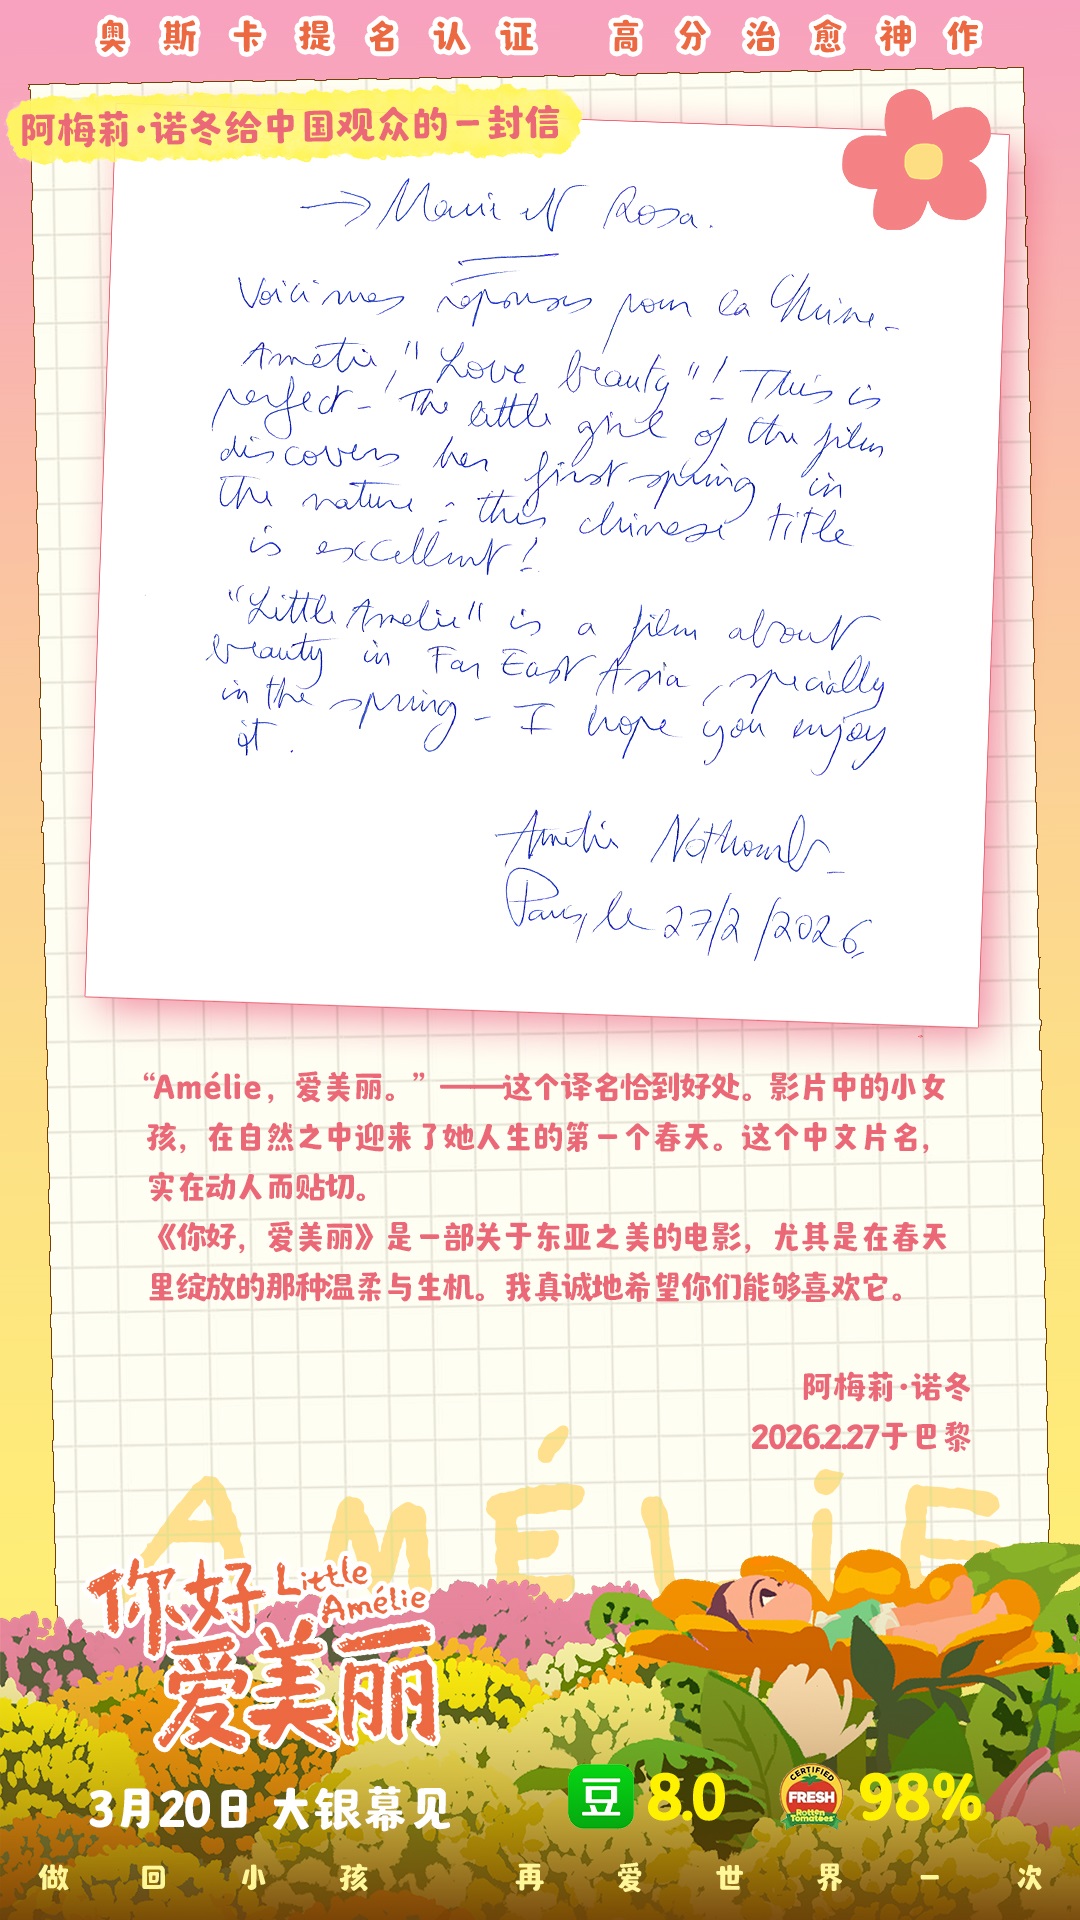 奥斯卡提名认证 高分治愈神作
阿梅莉·诺冬给中国观众的一封信
→ Marie et Rosa.
Voici mes réponses pour la Chine-
Amélie, "Love beauty"! This is
perfect - The little girl of the film
discovers her first spring in
the nature - this chinese title
is excellent!
"Little Amélie" is a film about
beauty in Far East Asia, specially
in the spring - I hope you enjoy
it.
Amélie Nothomb-
Paris, le 27/2/2026
“Amélie，爱美丽。”——这个译名恰到好处。影片中的小女
孩，在自然之中迎来了她人生的第一个春天。这个中文片名，
实在动人而贴切。
《你好，爱美丽》是一部关于东亚之美的电影，尤其是在春天
里绽放的那种温柔与生机。我真诚地希望你们能够喜欢它。
阿梅莉·诺冬
2026.2.27于巴黎
AMÉLiE
你好 Little
Amélie
爱美丽
3月20日 大银幕见
豆 8.0 CERTIFIED FRESH Rotten Tomatoes 98%
做回小孩 再爱世界一次